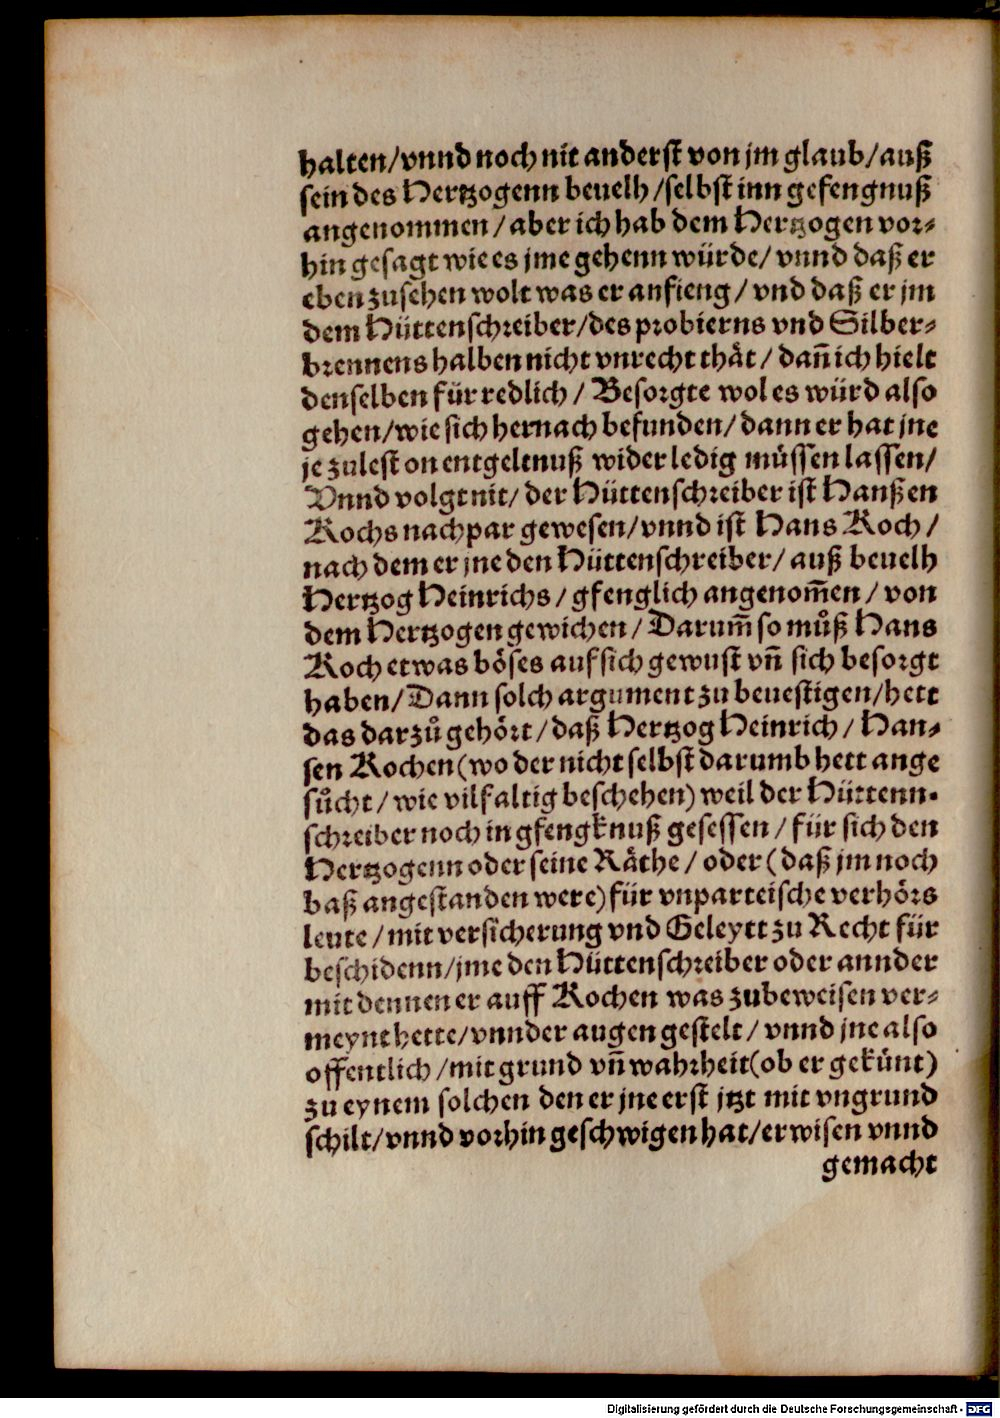 halten/vnnd noch nit anderst von jm glaub/auß
sein des Hertzogenn beuelh/selbst inn gefengnuß
angenommen/aber ich hab dem Hertzogen vor-
hin gesagt wie es jme gehenn würde/vnnd daß er
eben zusehen wolt was er anfieng/vnd daß er jm
dem Hüttenschreiber/des probierns vnd Silber-
brennens halben nicht vnrecht thät/dañ ich hielt
denselben für redlich/Besorgte wol es würd also
gehen/wie sich hernach befunden/dann er hat jne
je zulest on entgeltnuß wider ledig müssen lassen/
Vnnd volgt nit/der Hüttenschreiber ist Hanßen
Kochs nachpar gewesen/vnnd ist Hans Koch/
nach dem er jne den Hüttenschreiber/auß beuelh
Hertzog Heinrichs/gfenglich angenom̃en/von
dem Hertzogen gewichen/Darum̃ so můß Hans
Koch etwas böses auf sich gewust vñ sich besorgt
haben/Dann solch argument zu beuestigen/hett
das darzů gehört/daß Hertzog Heinrich/Han-
sen Kochen(wo der nicht selbst darumb hett ange
sůcht/wie vilfaltig beschehen)weil der Hüttenn-
schreiber noch in gfengknuß gesessen/für sich den
Hertzogenn oder seine Räthe/oder(daß jm noch
baß angestanden were)für vnparteische verhörs
leute/mit versicherung vnd Geleytt zu Recht für
beschidenn/jme den Hüttenschreiber oder annder
mit dennen er auff Kochen was zubeweisen ver-
meynt hette/vnnder augen gestelt/vnnd jne also
offentlich/mit grund vñ wahrheit(ob er gekünt)
zu eynem solchen den er jne erst jtzt mit vngrund
schilt/vnnd vorhin geschwigen hat/erwisen vnnd
gemacht
Digitalisierung gefördert durch die Deutsche Forschungsgemeinschaft - DFG